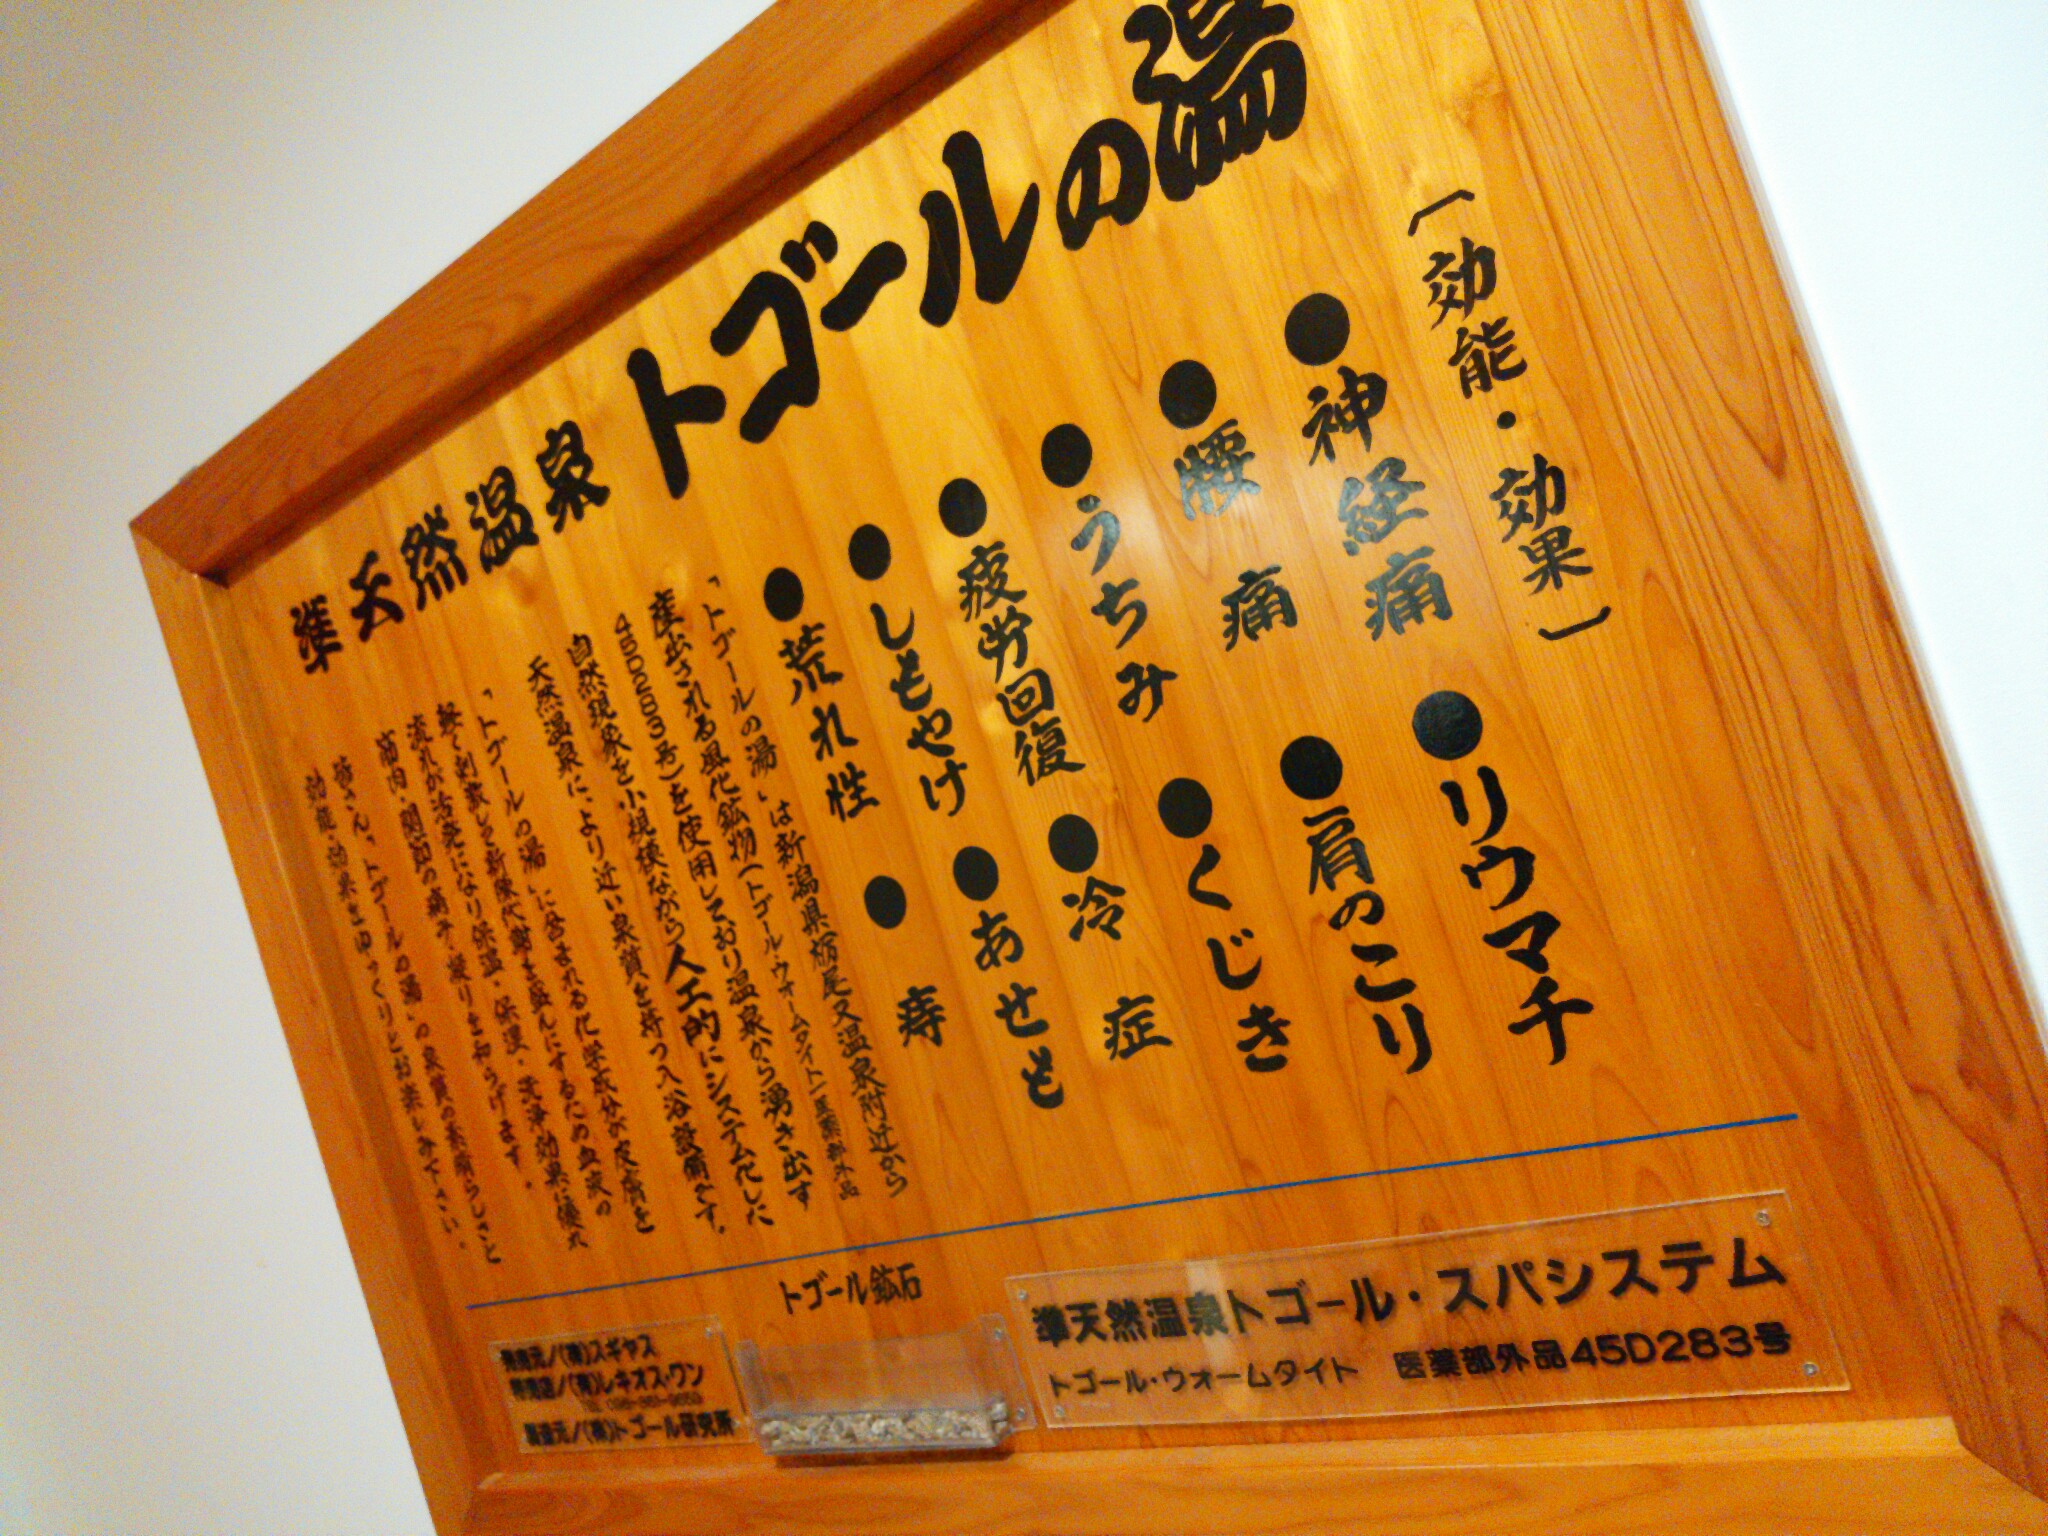 準天然温泉 トゴールの湯
〔効能・効果〕
●神経痛 ●リウマチ
●腰痛 ●肩のこり
●うちみ ●くじき
●疲労回復 ●冷症
●しもやけ ●あせも
●荒れ性 ●痔
「トゴールの湯」は新潟県栃尾又温泉附近から
産出される風化鉱物(トゴール・ウォームタイト)医薬部外品
45D283号)を使用しており温泉から湧き出す
自然現象を小規模ながら人工的にシステム化した
天然温泉に、より近い泉質を持つ入浴設備です。
「トゴールの湯」に含まれる化学成分が皮膚を
軽く刺激して新陳代謝を盛んにするため血液の
流れが活発になり保温・保湿・洗浄効果に優れ
筋肉・関節の痛み・凝りを和らげます。
皆さん、「トゴールの湯」の泉質の素晴らしさと
効能・効果をゆっくりとお楽しみ下さい。
トゴール鉱石
準天然温泉トゴール・スパシステム
トゴール・ウォームタイト 医薬部外品45D283号
発売元/(株)スギヤス
特約店/(有)レキオス・ワン
製造元/(株)トゴール研究所